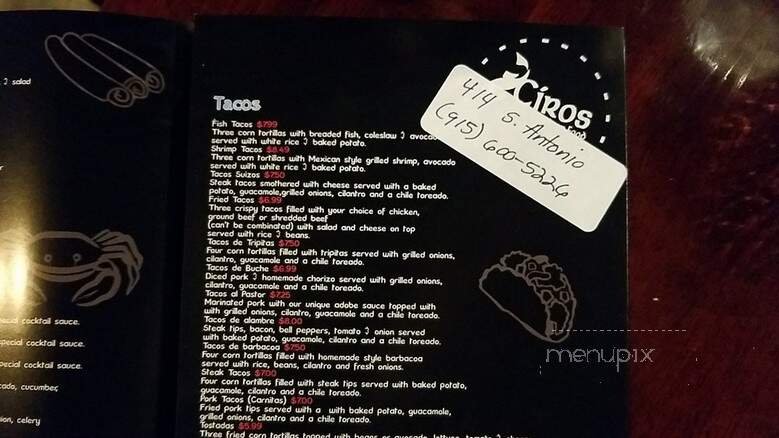 ɔ salad
ecial cocktail sauce.
pecial cocktail sauce.
pecial cocktail sauce.
cado, cucumber,
ion, celery
Tacos
Fish Tacos $7.99
Three corn tortillas with breaded fish, coleslaw ɔ avoca
served with white rice ɔ baked potato.
Shrimp Tacos $8.49
Three corn tortillas with Mexican style grilled shrimp, avocado
served with white rice ɔ baked potato.
Tacos Suizos $7.50
Steak tacos smothered with cheese served with a baked
potato, guacamole,grilled onions, cilantro and a chile toreado.
Fried Tacos $6.99
Three crispy tacos filled with your choice of chicken,
ground beef or shredded beef
(can't be combinated) with salad and cheese on top
served with rice ɔ beans.
Tacos de Tripitas $7.50
Four corn tortillas filled with tripitas served with grilled onions,
cilantro, guacamole and a chile toreado.
Tacos de Buche $6.99
Diced pork ɔ homemade chorizo served with grilled onions,
cilantro, guacamole and a chile toreado.
Tacos al Pastor $7.25
Marinated pork with our unique adobe sauce topped with
with grilled onions, cilantro, guacamole and a chile toreado.
Tacos de alambre $8.00
Steak tips, bacon, bell peppers, tomato ɔ onion served
with baked potato, guacamole, cilantro and a chile toreado.
Tacos de barbacoa $7.50
Four corn tortillas filled with homemade style barbacoa
served with rice, beans, cilantro and fresh onions.
Steak Tacos $7.00
Four corn tortillas filled with steak tips served with baked potato,
guacamole, cilantro and a chile toreado.
Pork Tacos (Carnitas) $7.00
Fried pork tips served with a with baked potato, guacamole,
grilled onions, cilantro and a chile toreado.
Tostadas $5.99
Three fried corn tortillas topped with beans or avocado, lettuce, tomato ɔ chee
Ciros
Food
414 S. Antonio
(915) 600-5226
menupix